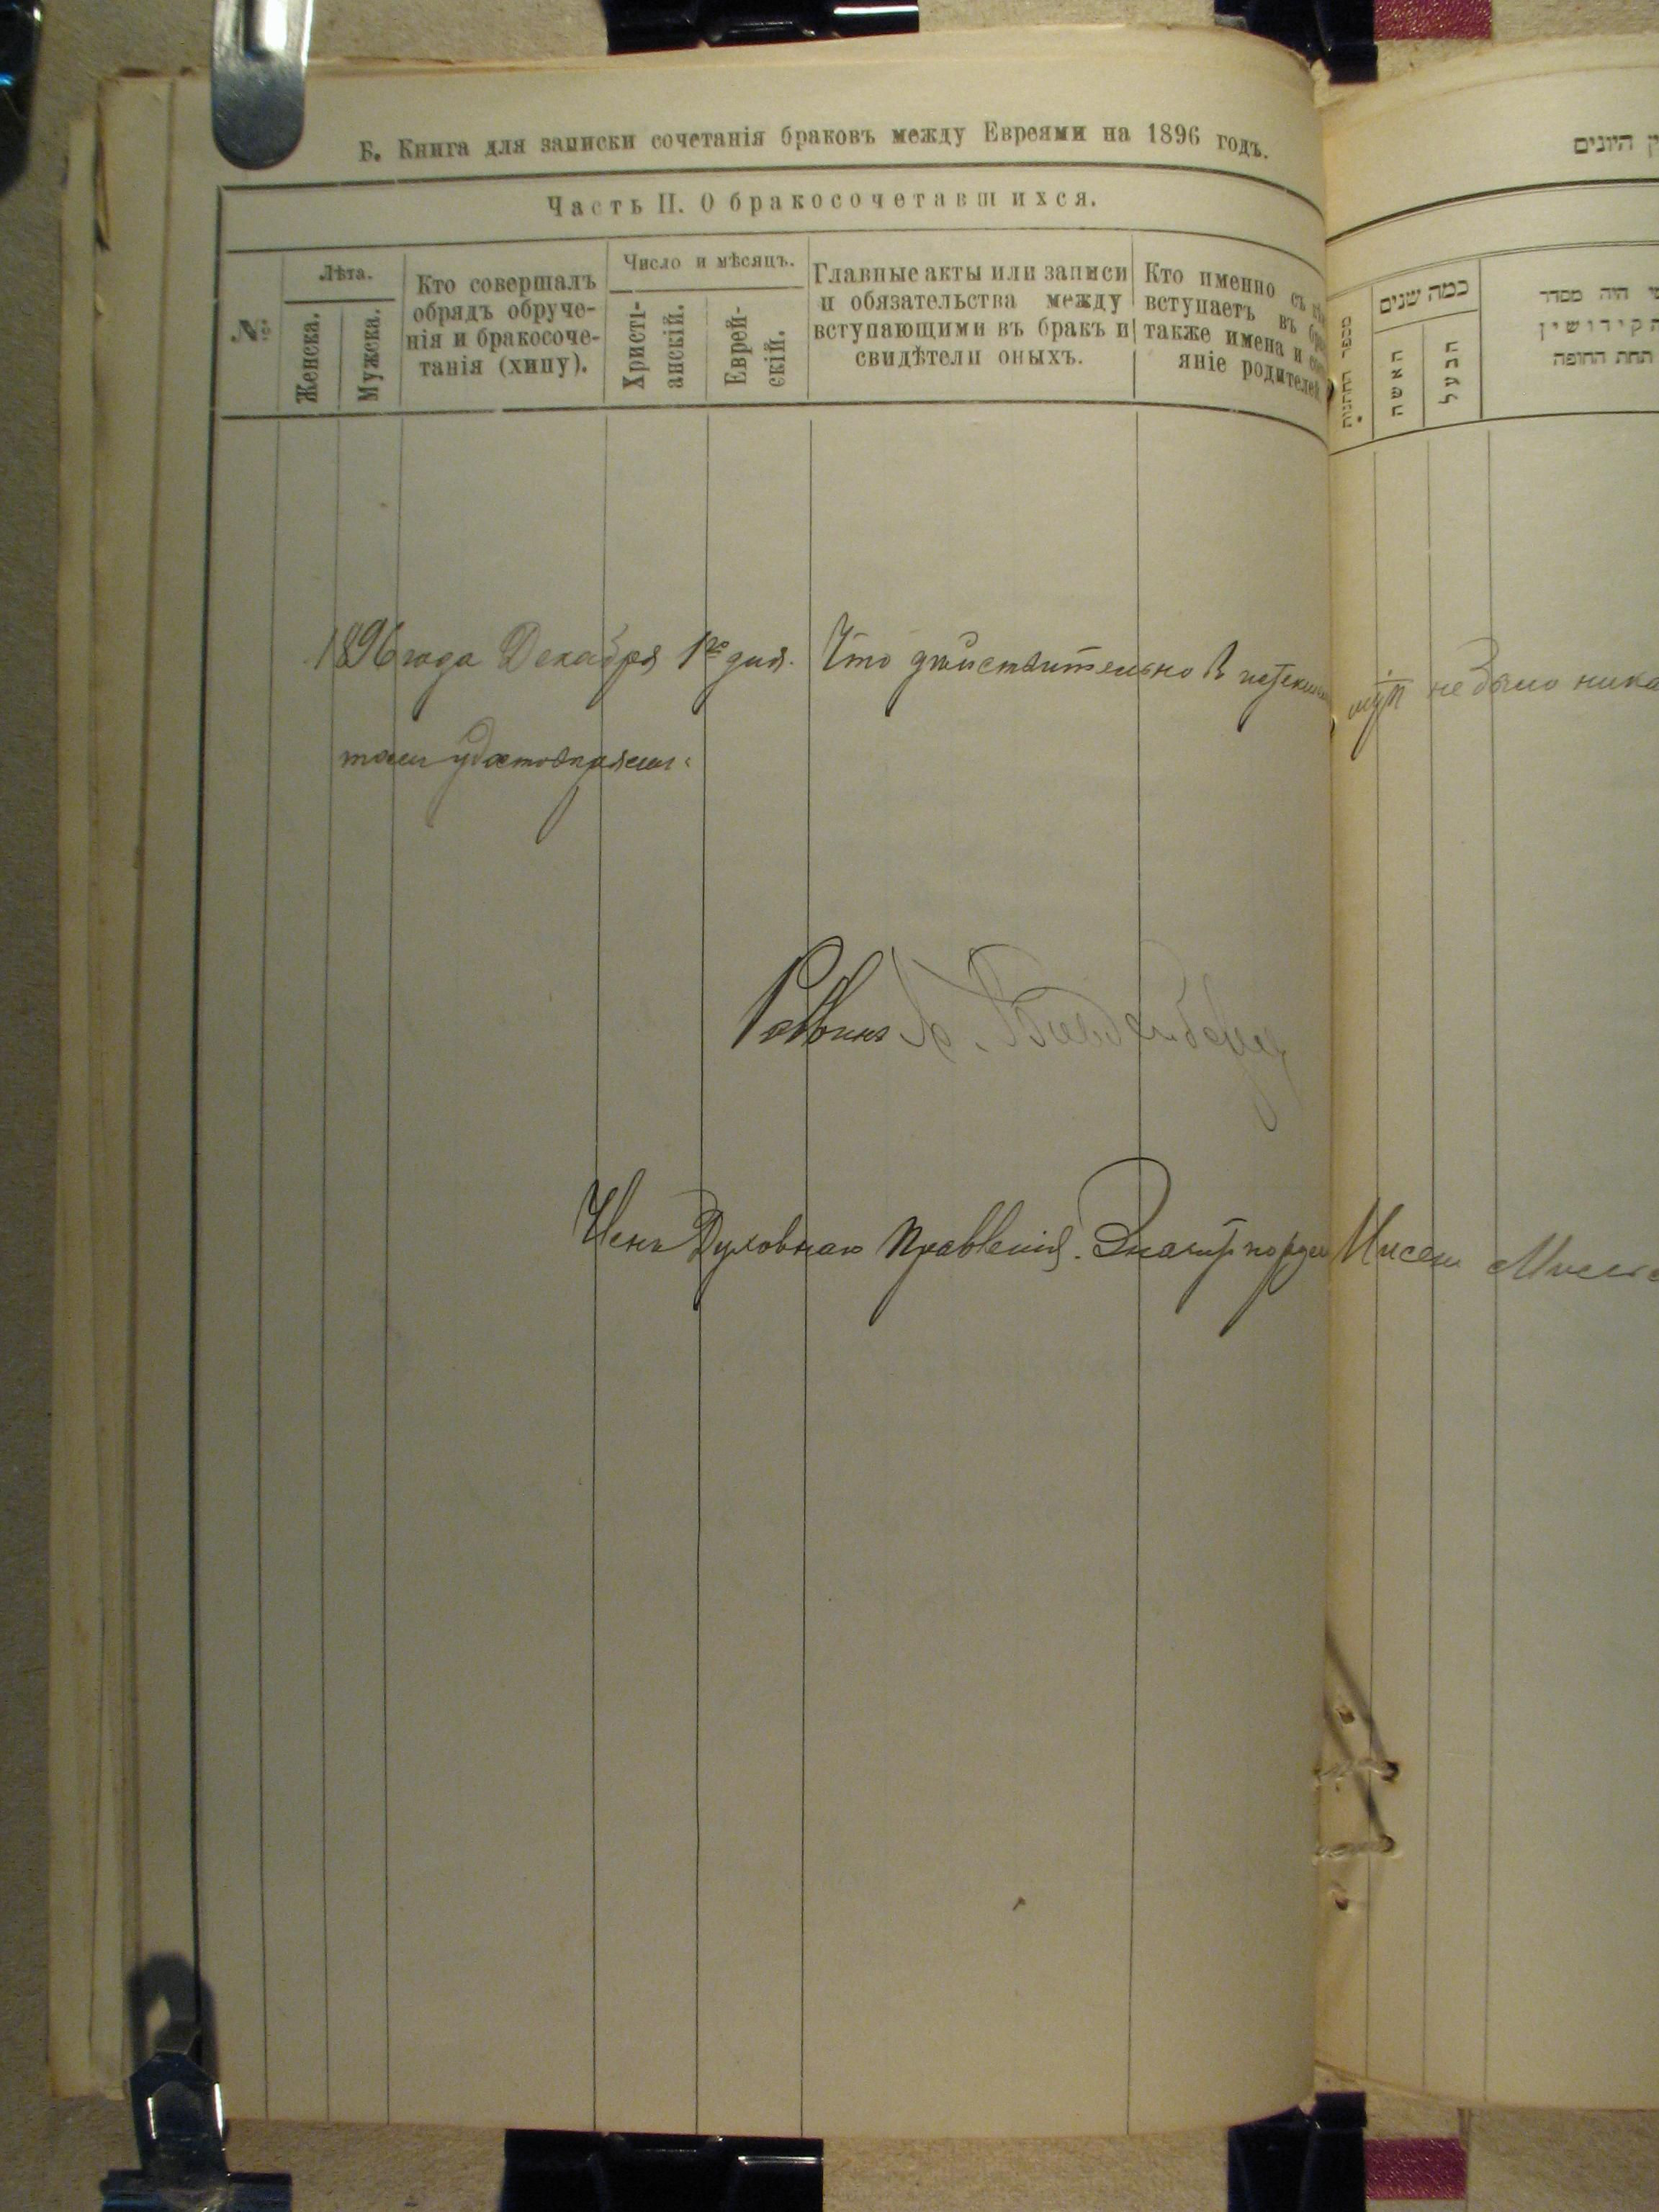 Б. Книга для записки сочетанія браковъ между Евреями на 1896 годъ.
Часть II. О бракосочетавшихся.
№
Лѣта.
Женска.
Мужска.
Кто совершалъ
обрядъ обруче-
нія и бракосоче-
танія (хипу).
Число и мѣсяцъ.
Христі-
анскій.
Еврей-
скій.
Главные акты или записи
и обязательства между
вступающими въ бракъ и
свидѣтели оныхъ.
Кто именно съ
вступаетъ въ
также имена и
яніе родителей
היונים
כמה שנים
מספר החתונות
האשה
הבעל
היה מסדר
הקידושין
תחת החופה
1896 года Декабря 1го дня. Что дѣйствительно въ не было
удостовѣряемъ
Раввинъ
Членъ Духовнаго Правленія